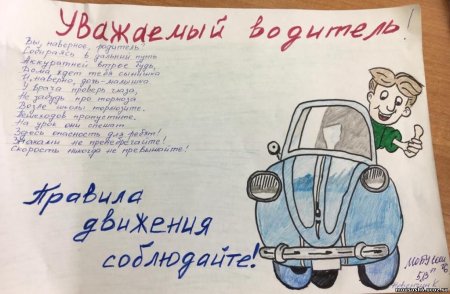 Уважаемый водитель!
Вы, наверное, родитель!
Собираясь в дальний путь
Аккуратней втрое будь,
Дома ждет тебя сынишка
И, наверно, дочь-малышка
У врача проверь глаза,
Не забудь про тормоза
Возле школы тормозите,
Пешеходов пропустите.
На урок они спешат
Здесь опасность для ребят!
Знаками не пренебрегайте!
Скорость никогда не превышайте!
Правила
движения
соблюдайте!
МБОУ СОШ
5"В"